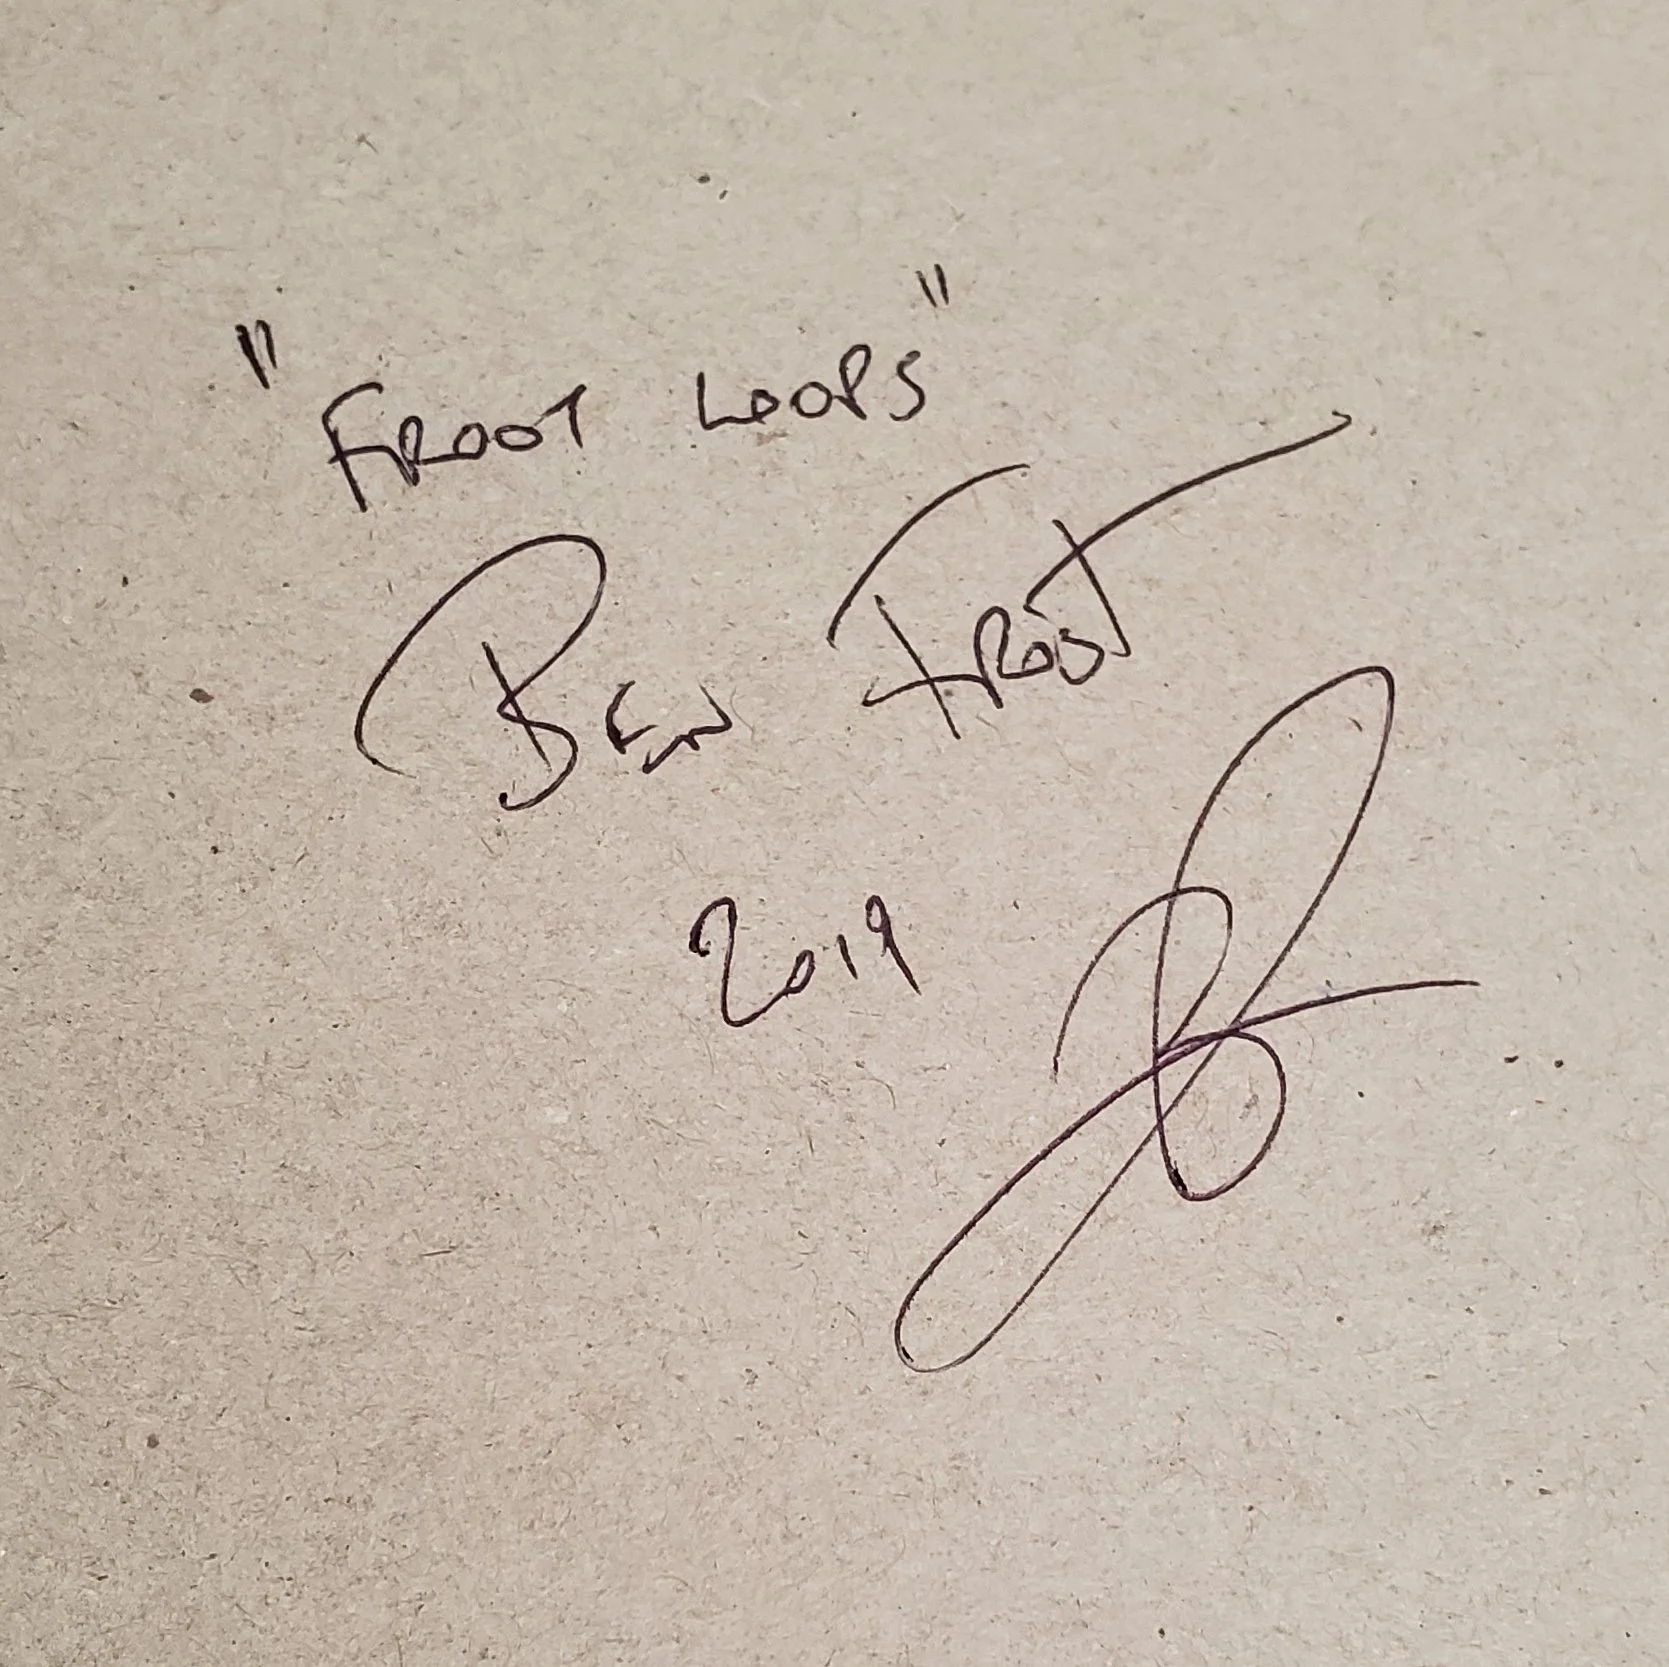 "FROOT LOOPS"
BEN FROST
2019